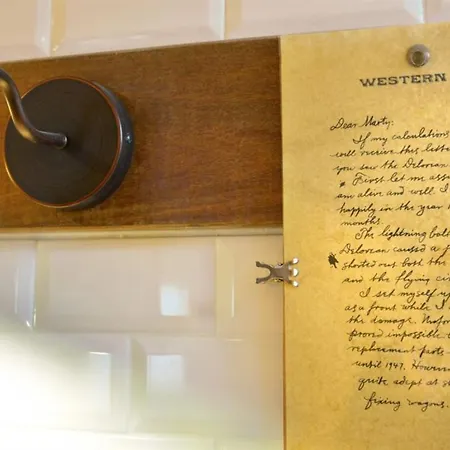 WESTERN
Dear Marty:
If my calculations
will receive this lette
you saw the Delorean
First let me ass
am alive and well. I
happily in the year
months.
The lightning bolt
Delorean caused a
shorted out both the
and the flying cir
I set myself up
as a front while I
the damage. Unfor
poved impossible
replacement parts
until 1947. However
quite adept at s
fixing wagons.